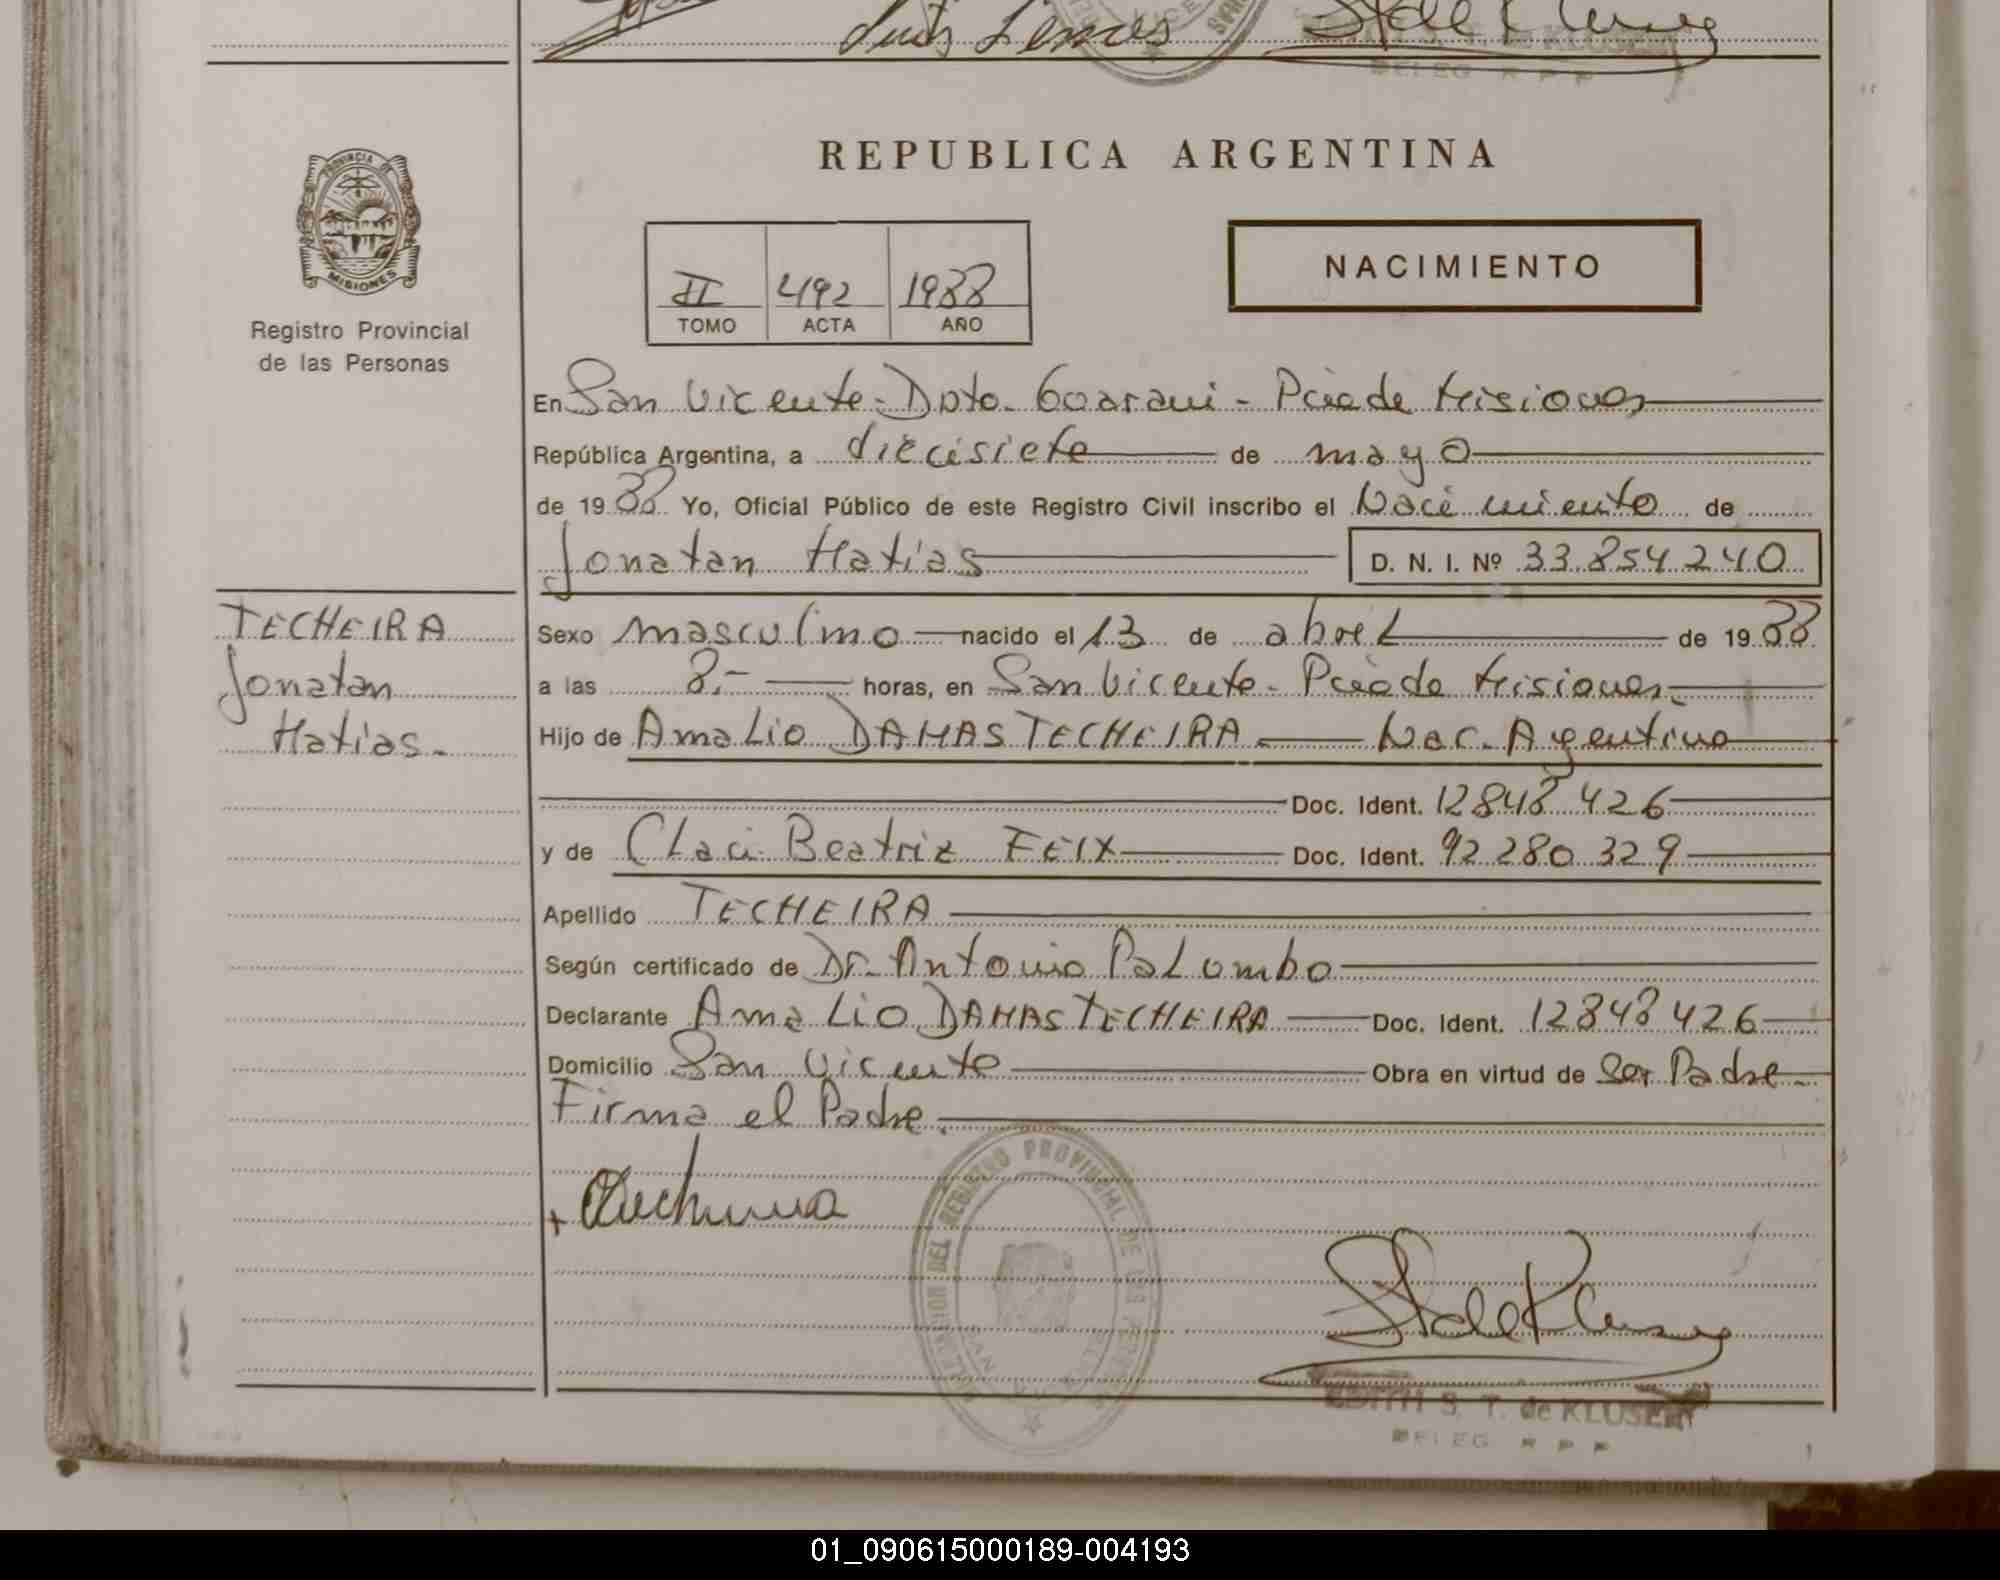 Luis Lemes
DELEG R P P
PROVINCIA DE
MISIONES
Registro Provincial
de las Personas
REPUBLICA ARGENTINA
II 492 1988
TOMO ACTA AÑO
NACIMIENTO
En San Vicente - Dpto. Guarani - Pcia de Misiones
República Argentina, a diecisiete de mayo
de 1988 Yo, Oficial Público de este Registro Civil inscribo el Nacimiento de
Jonatan Matias D. N. I. Nº 33.854.240
TECHEIRA
Jonatan
Matias.
Sexo masculino nacido el 13 de abril de 1988
a las 8.- horas, en San Vicente - Pcia de Misiones.
Hijo de Amalio DAMAS TECHEIRA - Nac. Argentino
Doc. Ident. 12848 426
y de Claci Beatriz FEIX Doc. Ident. 92 280 329
Apellido TECHEIRA
Según certificado de Dr. Antonio Palumbo
Declarante Amalio DAMAS TECHEIRA Doc. Ident. 12848 426
Domicilio San Vicente Obra en virtud de Ser Padre.
Firma el Padre.
DELEGACION DEL REGISTRO PROVINCIAL DE LAS PERSONAS
SAN VICENTE
EDITH S. T. de KLUSENER
DELEG R P P
01_090615000189-004193